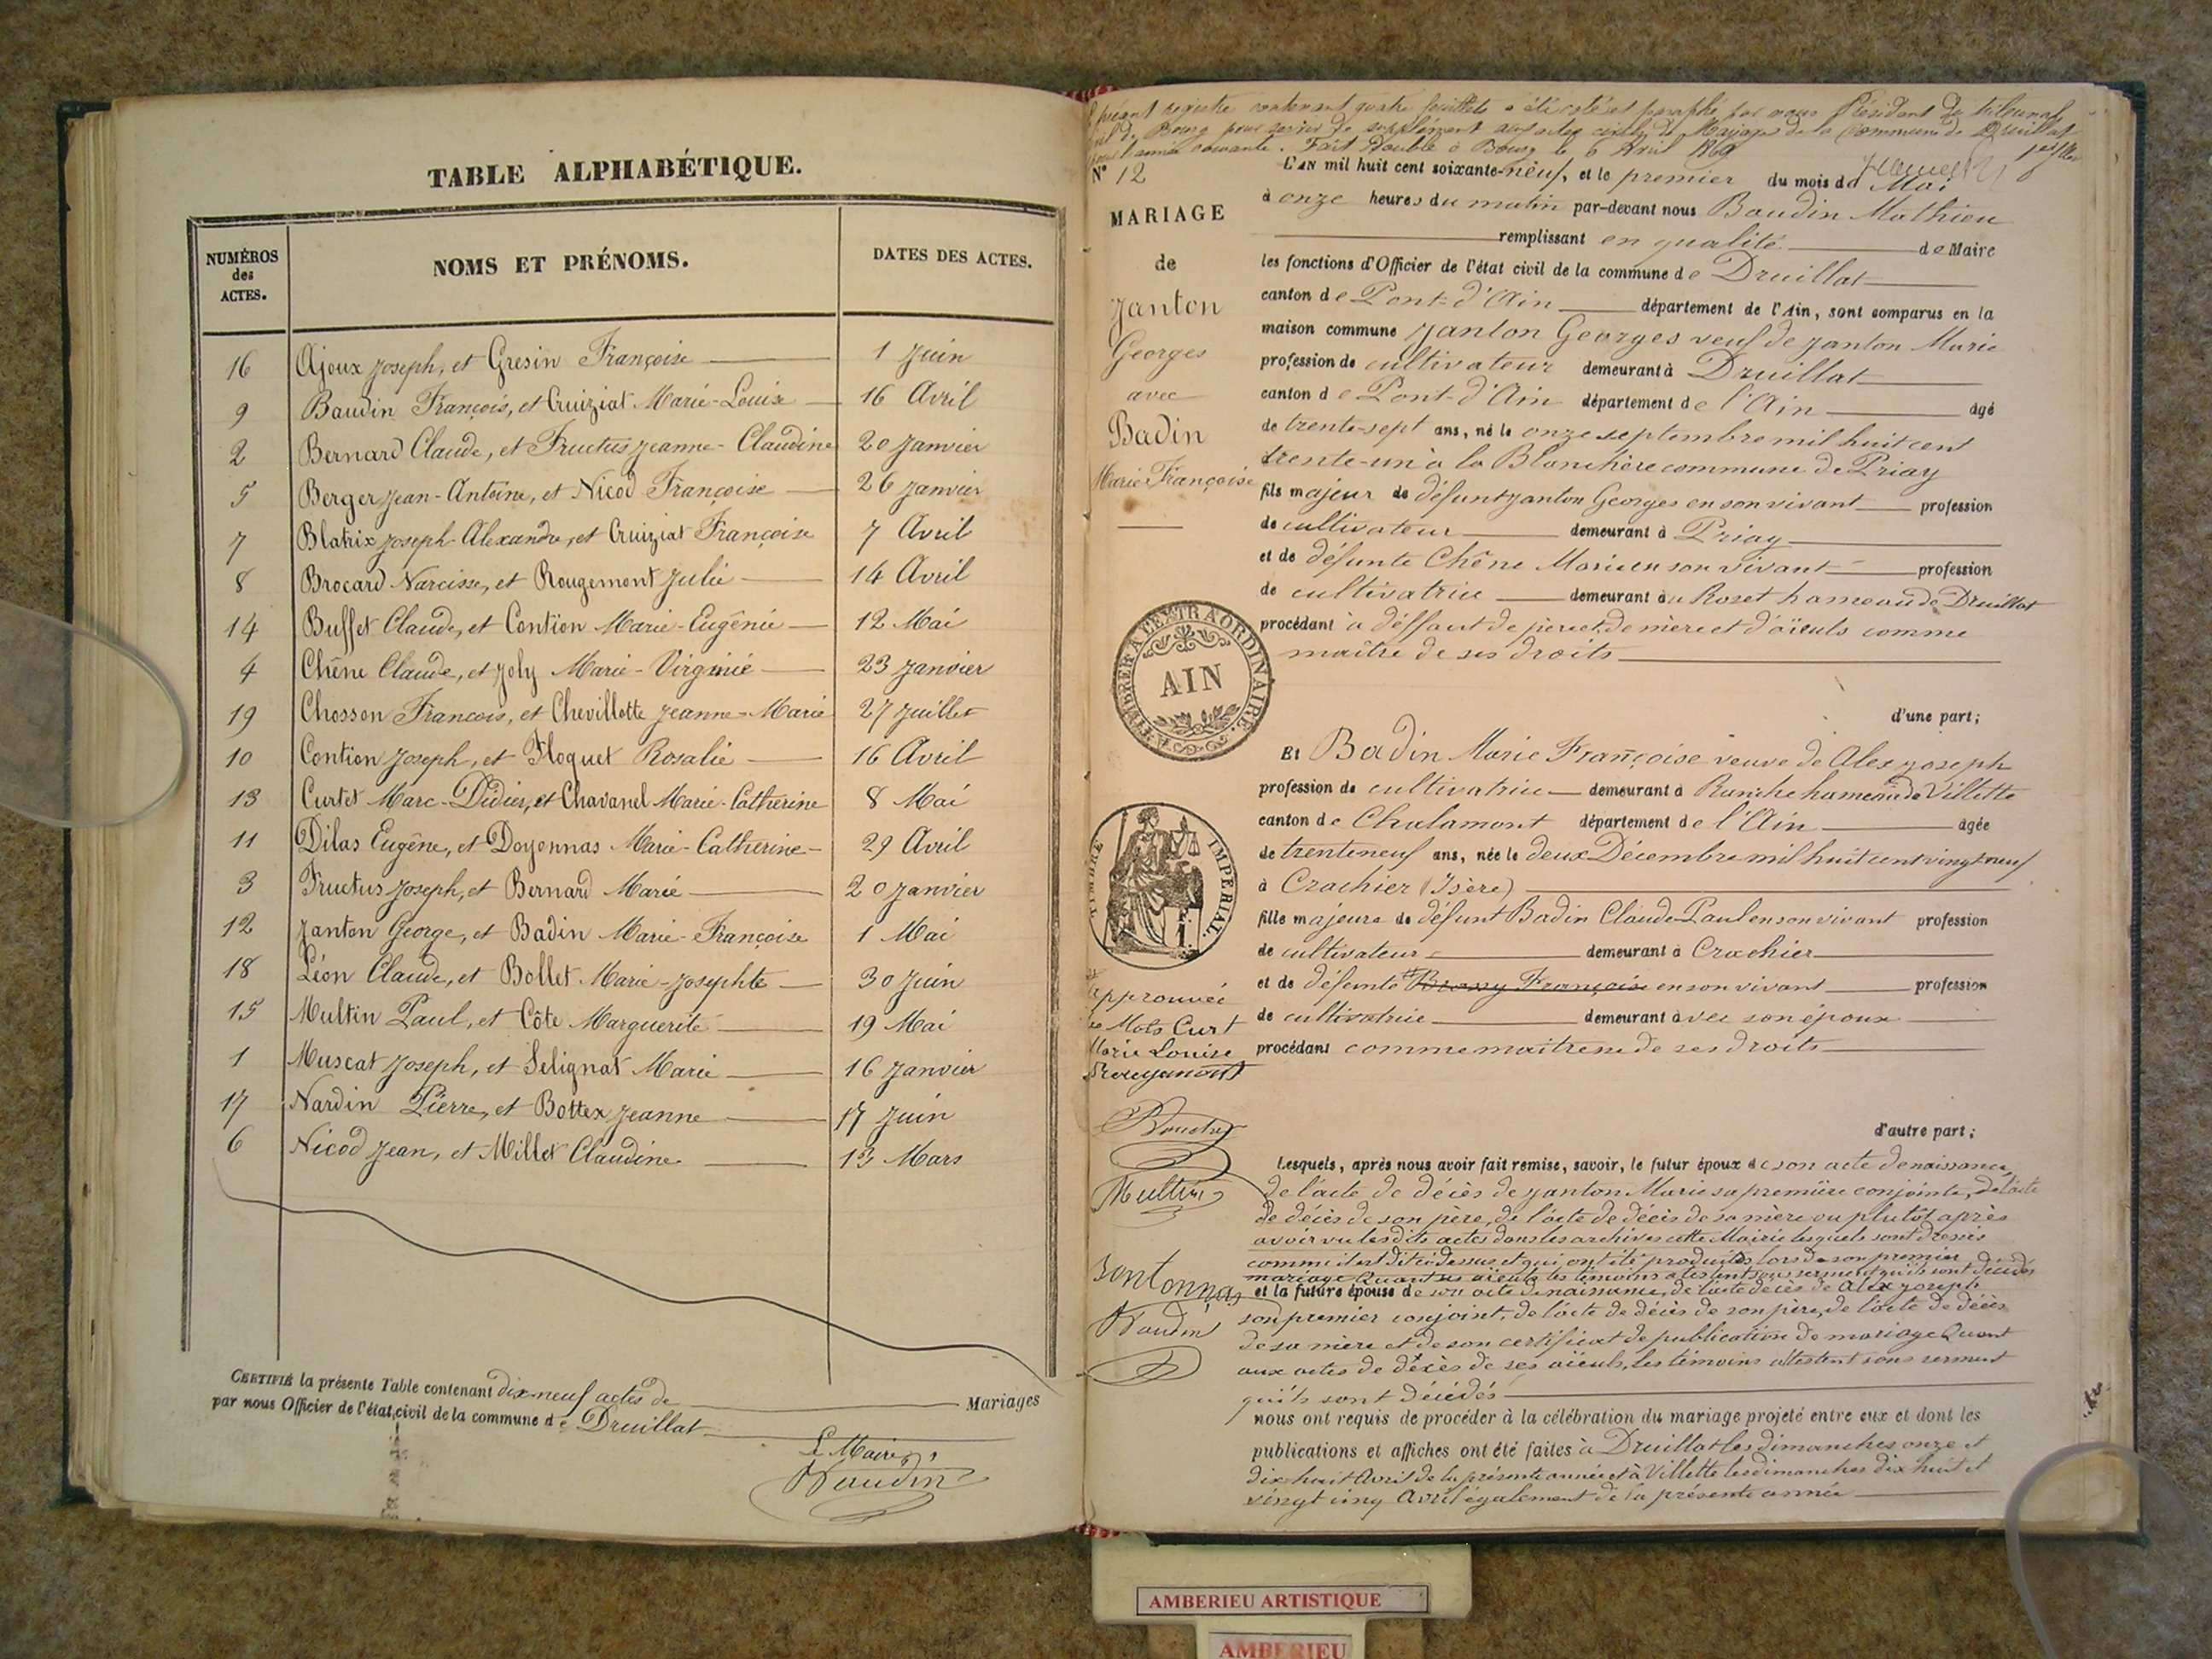 TABLE ALPHABÉTIQUE.
NUMÉROS des ACTES.
NOMS ET PRÉNOMS.
DATES DES ACTES.
16 Ajoux Joseph, et Gresin Françoise 1 Juin
9 Baudin François, et Cruiziat Marie-Louise 16 Avril
2 Bernard Claude, et Fructus Jeanne-Claudine 20 Janvier
5 Berger Jean-Antoine, et Nicod Françoise 26 Janvier
7 Blatrix Joseph-Alexandre, et Cruiziat Françoise 7 Avril
8 Brocard Narcisse, et Rougemont Julie 14 Avril
14 Buffet Claude, et Contion Marie-Eugénie 12 Mai
4 Chêne Claude, et Joly Marie-Virginie 23 Janvier
19 Chosson François, et Chevillotte Jeanne-Marie 27 Juillet
10 Contion Joseph, et Floquet Rosalie 16 Avril
13 Curtet Marc-Didier, et Chavanel Marie-Catherine 8 Mai
11 Dilas Eugêne, et Doyonnas Marie-Catherine 29 Avril
3 Fructus Joseph, et Bernard Marie 20 Janvier
12 Janton George, et Badin Marie-Françoise 1 Mai
18 Léon Claude, et Bollet Marie-Josephte 30 Juin
15 Multin Paul, et Côte Marguerite 19 Mai
1 Muscat Joseph, et Selignat Marie 16 Janvier
17 Nardin Pierre, et Bottex Jeanne 17 Juin
6 Nicod Jean, et Millet Claudine 13 Mars
CERTIFIÉ la présente Table contenant dix-neuf actes de Mariages
par nous Officier de l'état civil de la commune de Druillat
Le Maire,
Baudin
présent registre contenant quatre feuillets a été coté et paraphé par nous Président du tribunal
civil de Bourg pour servir de supplément aux actes civils de Mariages de la Commune de Druillat
pour l'année courante. Fait double à Bourg le 6 Avril 1869
N° 12
MARIAGE
de
Janton
Georges
avec
Badin
Marie Françoise
L'AN mil huit cent soixante-neuf, et le premier du mois de Mai
à onze heures du matin par-devant nous Baudin Mathieu
remplissant en qualité de Maire
les fonctions d'Officier de l'état civil de la commune de Druillat
canton de Pont-d'Ain département de l'Ain, sont comparus en la
maison commune Janton Georges veuf de Janton Marie
profession de cultivateur demeurant à Druillat
canton de Pont-d'Ain département de l'Ain âgé
de trente-sept ans, né le onze septembre mil huit cent
trente-un à la Blanchère commune de Priay
fils majeur de défunt Janton Georges en son vivant profession
de cultivateur demeurant à Priay
et de défunte Chêne Marie en son vivant profession
de cultivatrice demeurant au Roset hameau de Druillat
procédant à déffaut de père et de mère et d'aïeuls comme
maître de ses droits
d'une part;
TIMBRER A L'EXTRAORDINAIRE.
AIN
Et Badin Marie Françoise veuve de Alex Joseph
profession de cultivatrice demeurant à Ranche hameau de Villette
canton de Chalamont département de l'Ain âgée
de trente neuf ans, née le deux Décembre mil huit cent vingt neuf
à Crachier (Isère)
fille majeure de défunt Badin Claude-Paul en son vivant profession
de cultivateur demeurant à Crachier
et de défunte Françoise en son vivant profession
de cultivatrice demeurant avec son époux
procédant comme maîtresse de ses droits
d'autre part;
TIMBRE IMPERIAL.
approuvée
les Mots Curt
Marie Louise
Rougemont
Multin
Bontonnas
Baudin
Lesquels, après nous avoir fait remise, savoir, le futur époux de son acte de naissance,
de l'acte de décès de Janton Marie sa première conjointe, de l'acte
de décès de son père, de l'acte de décès de sa mère ou plutôt après
avoir vu les dits actes dans les archives cette Mairie lesquels sont dressés
comme il est dit ci-dessus et qui ont été produits lors de son premier
mariage Quant ses aïeuls les témoins attestent sous serment qu'ils sont décédés
et la future épouse de son acte de naissance, de l'acte de décès de Alex Joseph
son premier conjoint, de l'acte de décès de son père, de l'acte de décès
de sa mère et de son certificat de publication de mariage Quant
aux actes de décès de ses aïeuls, les témoins attestent sous serment
qu'ils sont décédés
nous ont requis de procéder à la célébration du mariage projeté entre eux et dont les
publications et affiches ont été faites à Druillat les dimanches onze et
dix huit Avril de la présente année et à Villette les dimanches dix huit et
vingt cinq Avril également de la présente année
AMBERIEU ARTISTIQUE
AMBERIEU